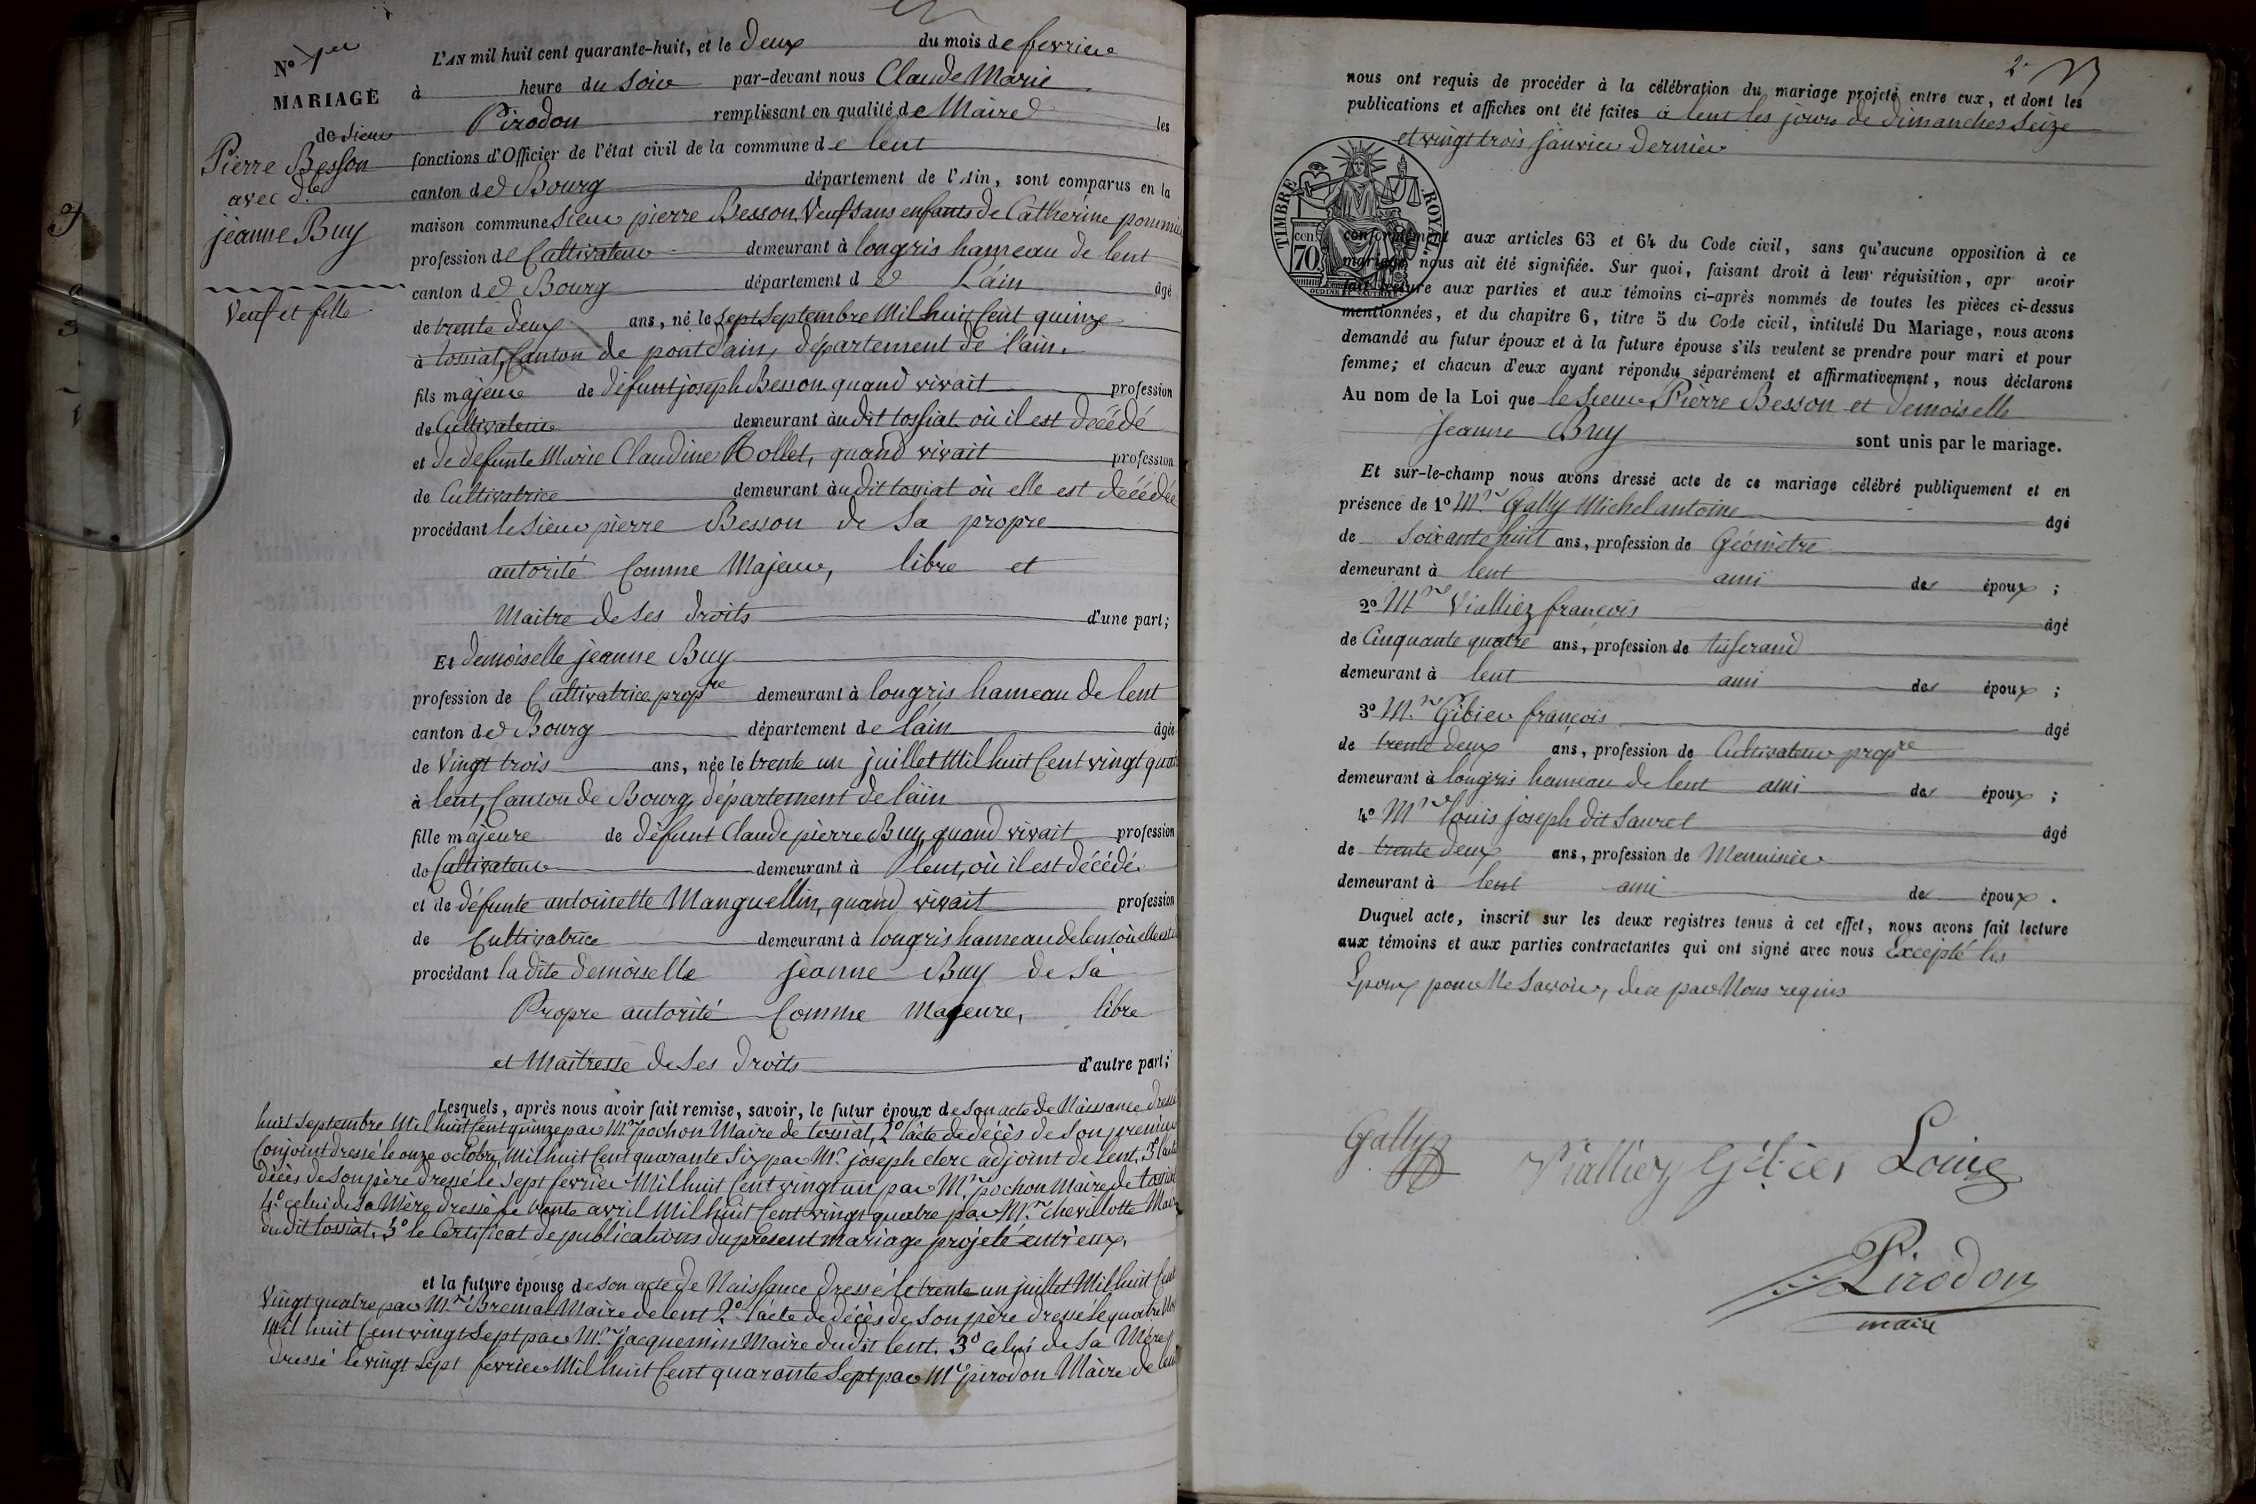 N° 1er
MARIAGE
de Sieur
Pierre Besson
avec dlle
jeanne Buy
Veuf et fille
L'AN mil huit cent quarante-huit, et le deux du mois de fevrier
à heure du Soir par-devant nous Claude Marie
Pirodon remplissant en qualité de Maire les
fonctions d'Officier de l'état civil de la commune de lent
canton de Bourg département de l'Ain, sont comparus en la
maison commune Sieur pierre Besson, Veuf sans enfants de Catherine
profession de Cultivateur demeurant à longris hameau de lent
canton de Bourg département de L'ain âgé
de trente deux ans, né le sept Septembre Mil huit Cent quinze
à tossiat, Canton de pontd'ain, département de l'ain.
fils majeur de défunt joseph Besson quand vivait profession
de Cultivateur demeurant audit tossiat où il est décédé
et de défunte Marie Claudine Rollet, quand vivait profession
de Cultivatrice demeurant audit tossiat où elle est décédée
procédant le Sieur pierre Besson de Sa propre
autorité Comme Majeur, libre et
Maitre de Ses droits d'une part;
Et demoiselle jeanne Buy
profession de Cultivatrice propre demeurant à longris hameau de lent
canton de Bourg département de l'ain âgée
de Vingt trois ans, née le trente un juillet Mil huit Cent vingt quat
à lent, Canton de Bourg, département de l'ain
fille majeure de défunt Claude pierre Buy, quand vivait profession
de Cultivateur demeurant à lent, où il est décédé
et de défunte antoinette Manguellin, quand vivait profession
de Cultivatrice demeurant à longris hameau de lent où elle est
procédant la dite demoiselle jeanne Buy de Sa
Propre autorité Comme Majeure, libre
et Maitresse de Ses droits d'autre part;
Lesquels, après nous avoir fait remise, savoir, le futur époux de Son acte de Naissance dressé
huit Septembre Mil huit Cent quinze par Mr pochon Maire de tossiat, 2° l'acte de décès de Son premier
Conjoint dressé le onze octobre, Mil huit Cent quarante Six par Mr. joseph clerc adjoint de lent. 3° l'acte
décès de Son père dressé le Sept fevrier Mil huit Cent vingt un par Mr. pochon Maire de tossiat
4° celui de Sa Mère dressé le trente avril Mil huit Cent vingt quatre par Mr. chevillotte Maire
dudit tossiat. 5° le Certificat de publications du présent mariage projeté entr'eux.
et la future épouse de son acte de Naissance dressé le trente un juillet Mil huit Cent
Vingt quatre par Mr Bremal Maire de lent 2° l'acte de décès de Son père dressé le quatre
Mil huit Cent vingt Sept par Mr. jacquemin Maire dudit lent. 3° celui de Sa Mère
dressé le vingt Sept fevrier Mil huit Cent quarante Sept par Mr pirodon Maire de lent
2
nous ont requis de procéder à la célébration du mariage projeté entre eux, et dont les
publications et affiches ont été faites à lent les jours de dimanches Seize
et vingt trois janvier dernier
TIMBRE ROYAL
cen. 70
conformément aux articles 63 et 64 du Code civil, sans qu'aucune opposition à ce
mariage nous ait été signifiée. Sur quoi, faisant droit à leur réquisition, apr avoir
fait lecture aux parties et aux témoins ci-après nommés de toutes les pièces ci-dessus
mentionnées, et du chapitre 6, titre 5 du Code civil, intitulé Du Mariage, nous avons
demandé au futur époux et à la future épouse s'ils veulent se prendre pour mari et pour
femme; et chacun d'eux ayant répondu séparément et affirmativement, nous déclarons
Au nom de la Loi que le Sieur Pierre Besson et demoiselle
Jeanne Buy sont unis par le mariage.
Et sur-le-champ nous avons dressé acte de ce mariage célébré publiquement et en
présence de 1° Mr. Gally Michel antoine âgé
de Soixante huit ans, profession de Géomètre
demeurant à lent ami des époux ;
2° Mr Vialliez françois âgé
de Cinquante quatre ans, profession de tisserand
demeurant à lent ami des époux ;
3° Mr. Gibier françois âgé
de trente deux ans, profession de Cultivateur propre
demeurant à longris hameau de lent ami des époux ;
4° Mr louis joseph dit Sauret âgé
de trente deux ans, profession de Menuisier
demeurant à lent ami des époux .
Duquel acte, inscrit sur les deux registres tenus à cet effet, nous avons fait lecture
aux témoins et aux parties contractantes qui ont signé avec nous Excepté les
Epoux pour Ne Savoir, de ce par Nous requis
Gally Vialliez Gibier Louis
Pirodon
maire